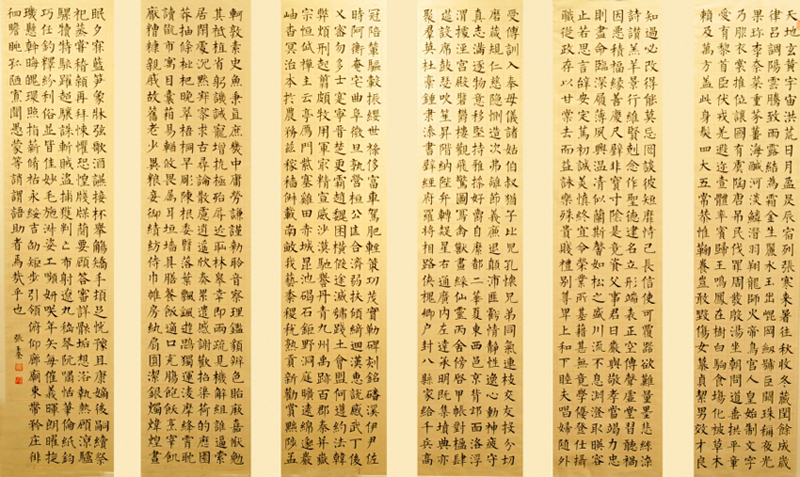 天地玄黃宇宙洪荒日月盈昃辰宿列張寒來暑往秋收冬藏閏餘成歲
律呂調陽雲騰致雨露結為霜金生麗水玉出崑岡劍號巨闕珠稱夜光
果珍李柰菜重芥薑海鹹河淡鱗潛羽翔龍師火帝鳥官人皇始制文字
乃服衣裳推位讓國有虞陶唐弔民伐罪周發殷湯坐朝問道垂拱平章
愛育黎首臣伏戎羌遐邇壹體率賓歸王鳴鳳在樹白駒食場化被草木
賴及萬方蓋此身髮四大五常恭惟鞠養豈敢毀傷女慕貞絜男效才良
知過必改得能莫忘罔談彼短靡恃己長信使可覆器欲難量墨悲絲染
詩讚羔羊景行維賢剋念作聖德建名立形端表正空傳聲虛堂習聽禍
因惡積福緣善慶尺璧非寶寸陰是競資父事君曰嚴與敬孝當竭力忠
則盡命臨深履薄夙興溫凊似蘭斯馨如松之盛川流不息淵澄取映容
止若思言辭安定篤初誠美慎終宜令榮業所基籍甚無竟學優登仕攝
職從政存以甘棠去而益詠樂殊貴賤禮別尊卑上和下睦夫唱婦隨外
受傅訓入奉母儀諸姑伯叔猶子比兒孔懷兄弟同氣連枝交友投分切
磨箴規仁慈隱惻造次弗離節義廉退顛沛匪虧性靜情逸心動神疲守
真志滿逐物意移堅持雅操好爵自縻都邑華夏東西二京背邙面洛浮
渭據涇宮殿盤鬱樓觀飛驚圖寫禽獸畫綵仙靈丙舍傍啟甲帳對楹肆
筵設席鼓瑟吹笙升階納陛弁轉疑星右通廣內左達承明既集墳典亦
聚群英杜稾鍾隸漆書壁經府羅將相路俠槐卿戶封八縣家給千兵高
冠陪輦驅轂振纓世祿侈富車駕肥輕策功茂實勒碑刻銘磻溪伊尹佐
時阿衡奄宅曲阜微旦孰營桓公匡合濟弱扶傾綺迴漢惠說感武丁俊
乂密勿多士寔寧晉楚更霸趙魏困橫假途滅虢踐土會盟何遵約法韓
弊煩刑起翦頗牧用軍最精宣威沙漠馳譽丹青九州禹跡百郡秦并嶽
宗恒岱禪主云亭雁門紫塞雞田赤城昆池碣石鉅野洞庭曠遠綿邈巖
岫杳冥治本於農務茲稼穡俶載南畝我藝黍稷稅熟貢新勸賞黜陟孟
軻敦素史魚秉直庶幾中庸勞謙謹敕聆音察理鑑貌辨色貽厥嘉猷勉
其祗植省躬譏誡寵增抗極殆辱近恥林皋幸即兩疏見機解組誰逼索
居閒處沉默寂寥求古尋論散慮逍遙欣奏累遣慼謝歡招渠荷的歷園
莽抽條枇杷晚翠梧桐早凋陳根委翳落葉飄颻遊鵾獨運凌摩絳霄耽
讀翫市寓目囊箱易輶攸畏屬耳垣牆具膳餐飯適口充腸飽飫烹宰飢
厭糟糠親戚故舊老少異糧妾御績紡侍巾帷房紈扇圓潔銀燭煒煌晝
眠夕寐藍筍象床弦歌酒讌接杯舉觴矯手頓足悅豫且康嫡後嗣續祭
祀烝嘗稽顙再拜悚懼恐惶牋牒簡要顧答審詳骸垢想浴執熱願涼驢
騾犢特駭躍超驤誅斬賊盜捕獲叛亡布射遼丸嵇琴阮嘯恬筆倫紙鈞
巧任釣釋紛利俗並皆佳妙毛施淑姿工顰妍笑年矢每催曦暉朗曜旋
璣懸斡晦魄環照指薪修祜永綏吉劭矩步引領俯仰廊廟束帶矜莊徘
徊瞻眺孤陋寡聞愚蒙等誚謂語助者焉哉乎也